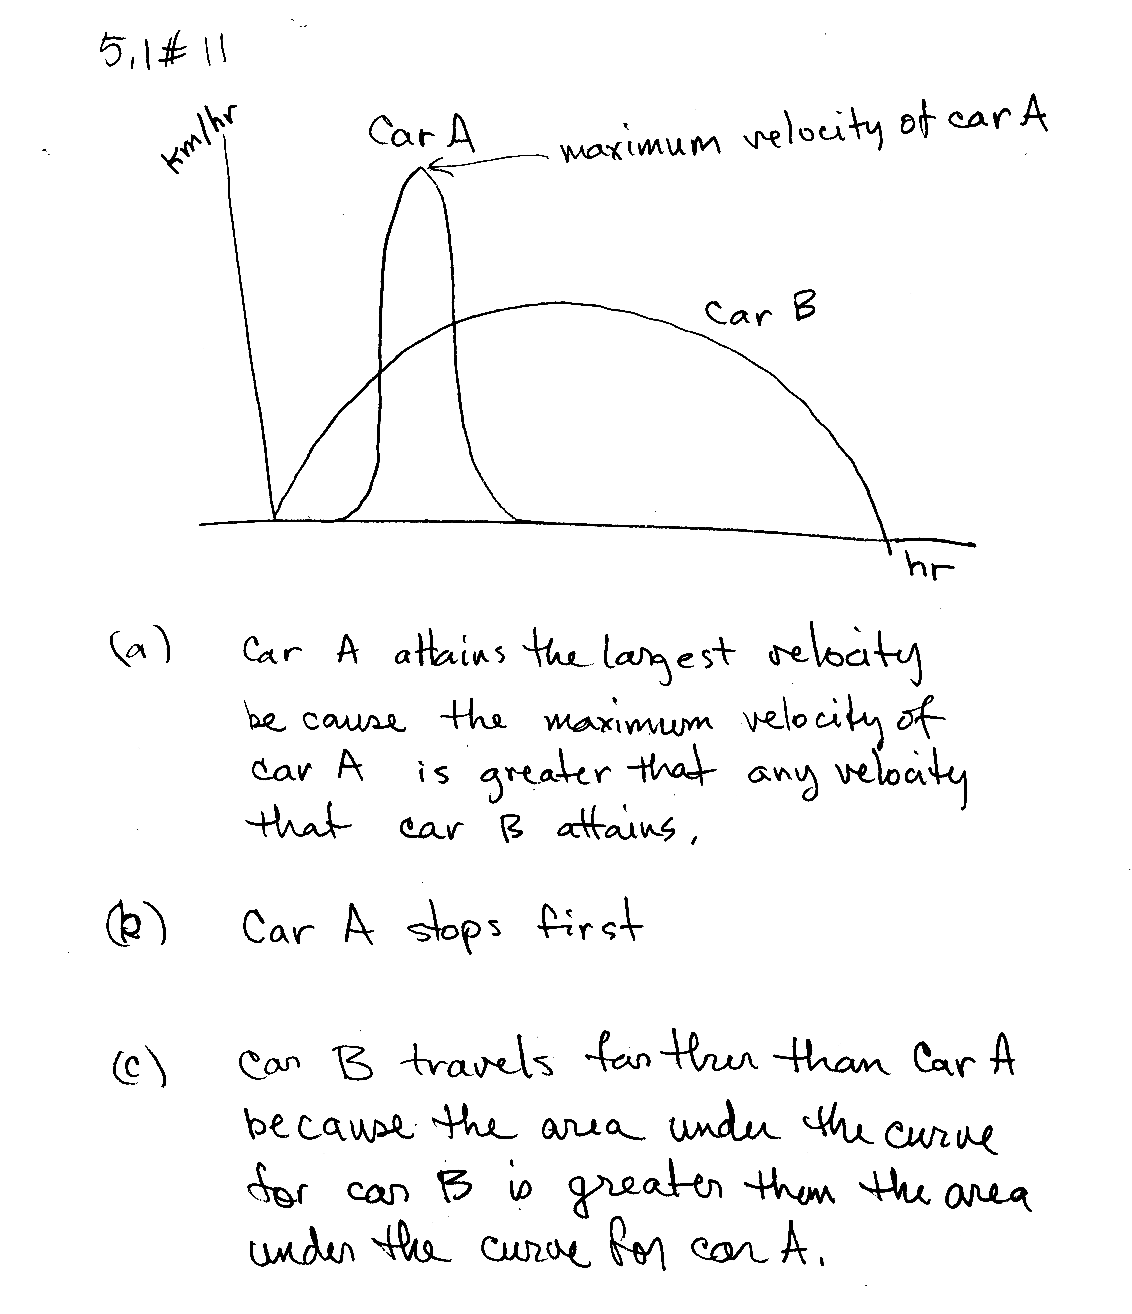 5.1 # 11
km/hr
Car A
maximum velocity of car A
Car B
hr
(a) Car A attains the largest velocity
be cause the maximum velocity of
car A is greater that any velocity
that car B attains.
(b) Car A stops first
(c) Car B travels farther than Car A
because the area under the curve
for car B is greater than the area
under the curve for car A.